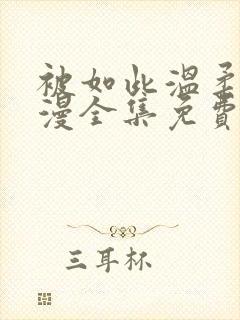 被如此温柔
漫全集免费
三耳杯